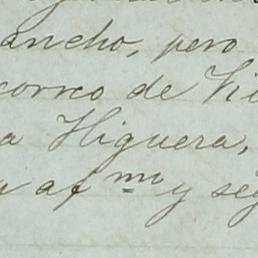 ancho, pero
correo de Vi
a Higuera,
af mo y seg